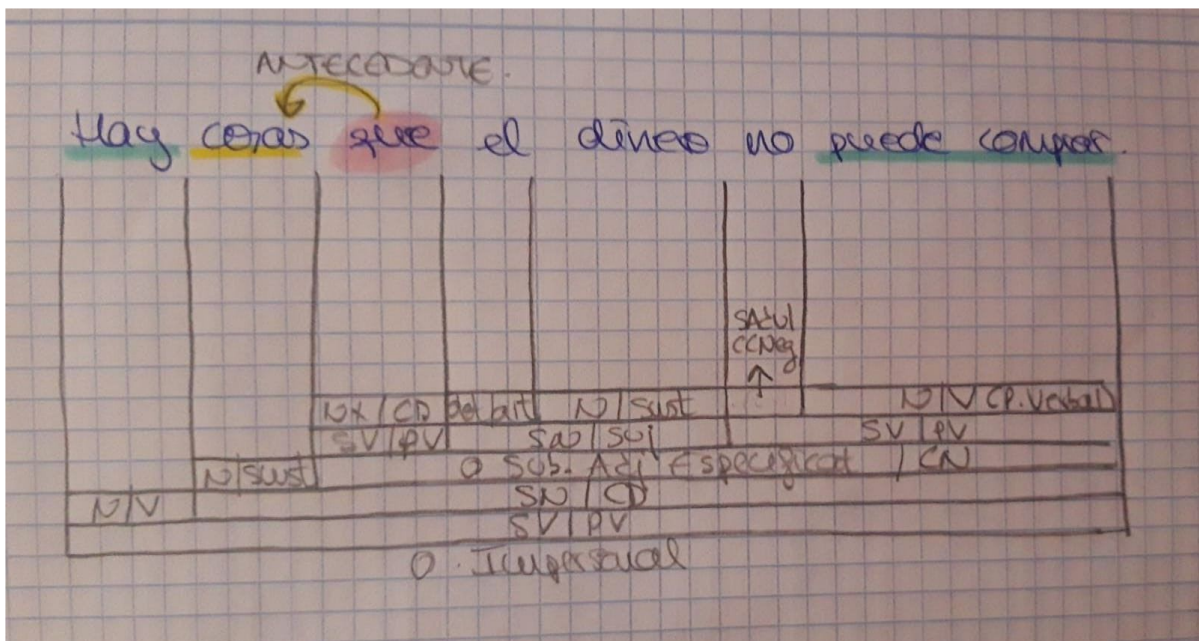 ANTECEDENTE.
Hay cosas que el dinero no puede comprar.
SAdv/
CCNeg
NX/CD Det/art N/Sust N/V (P. Verbal)
SV/PV SN/Suj SV/PV
N/Sust O Sub. Adj Especificat /CN
N/V SN/CD
SV/PV
O. Impersonal